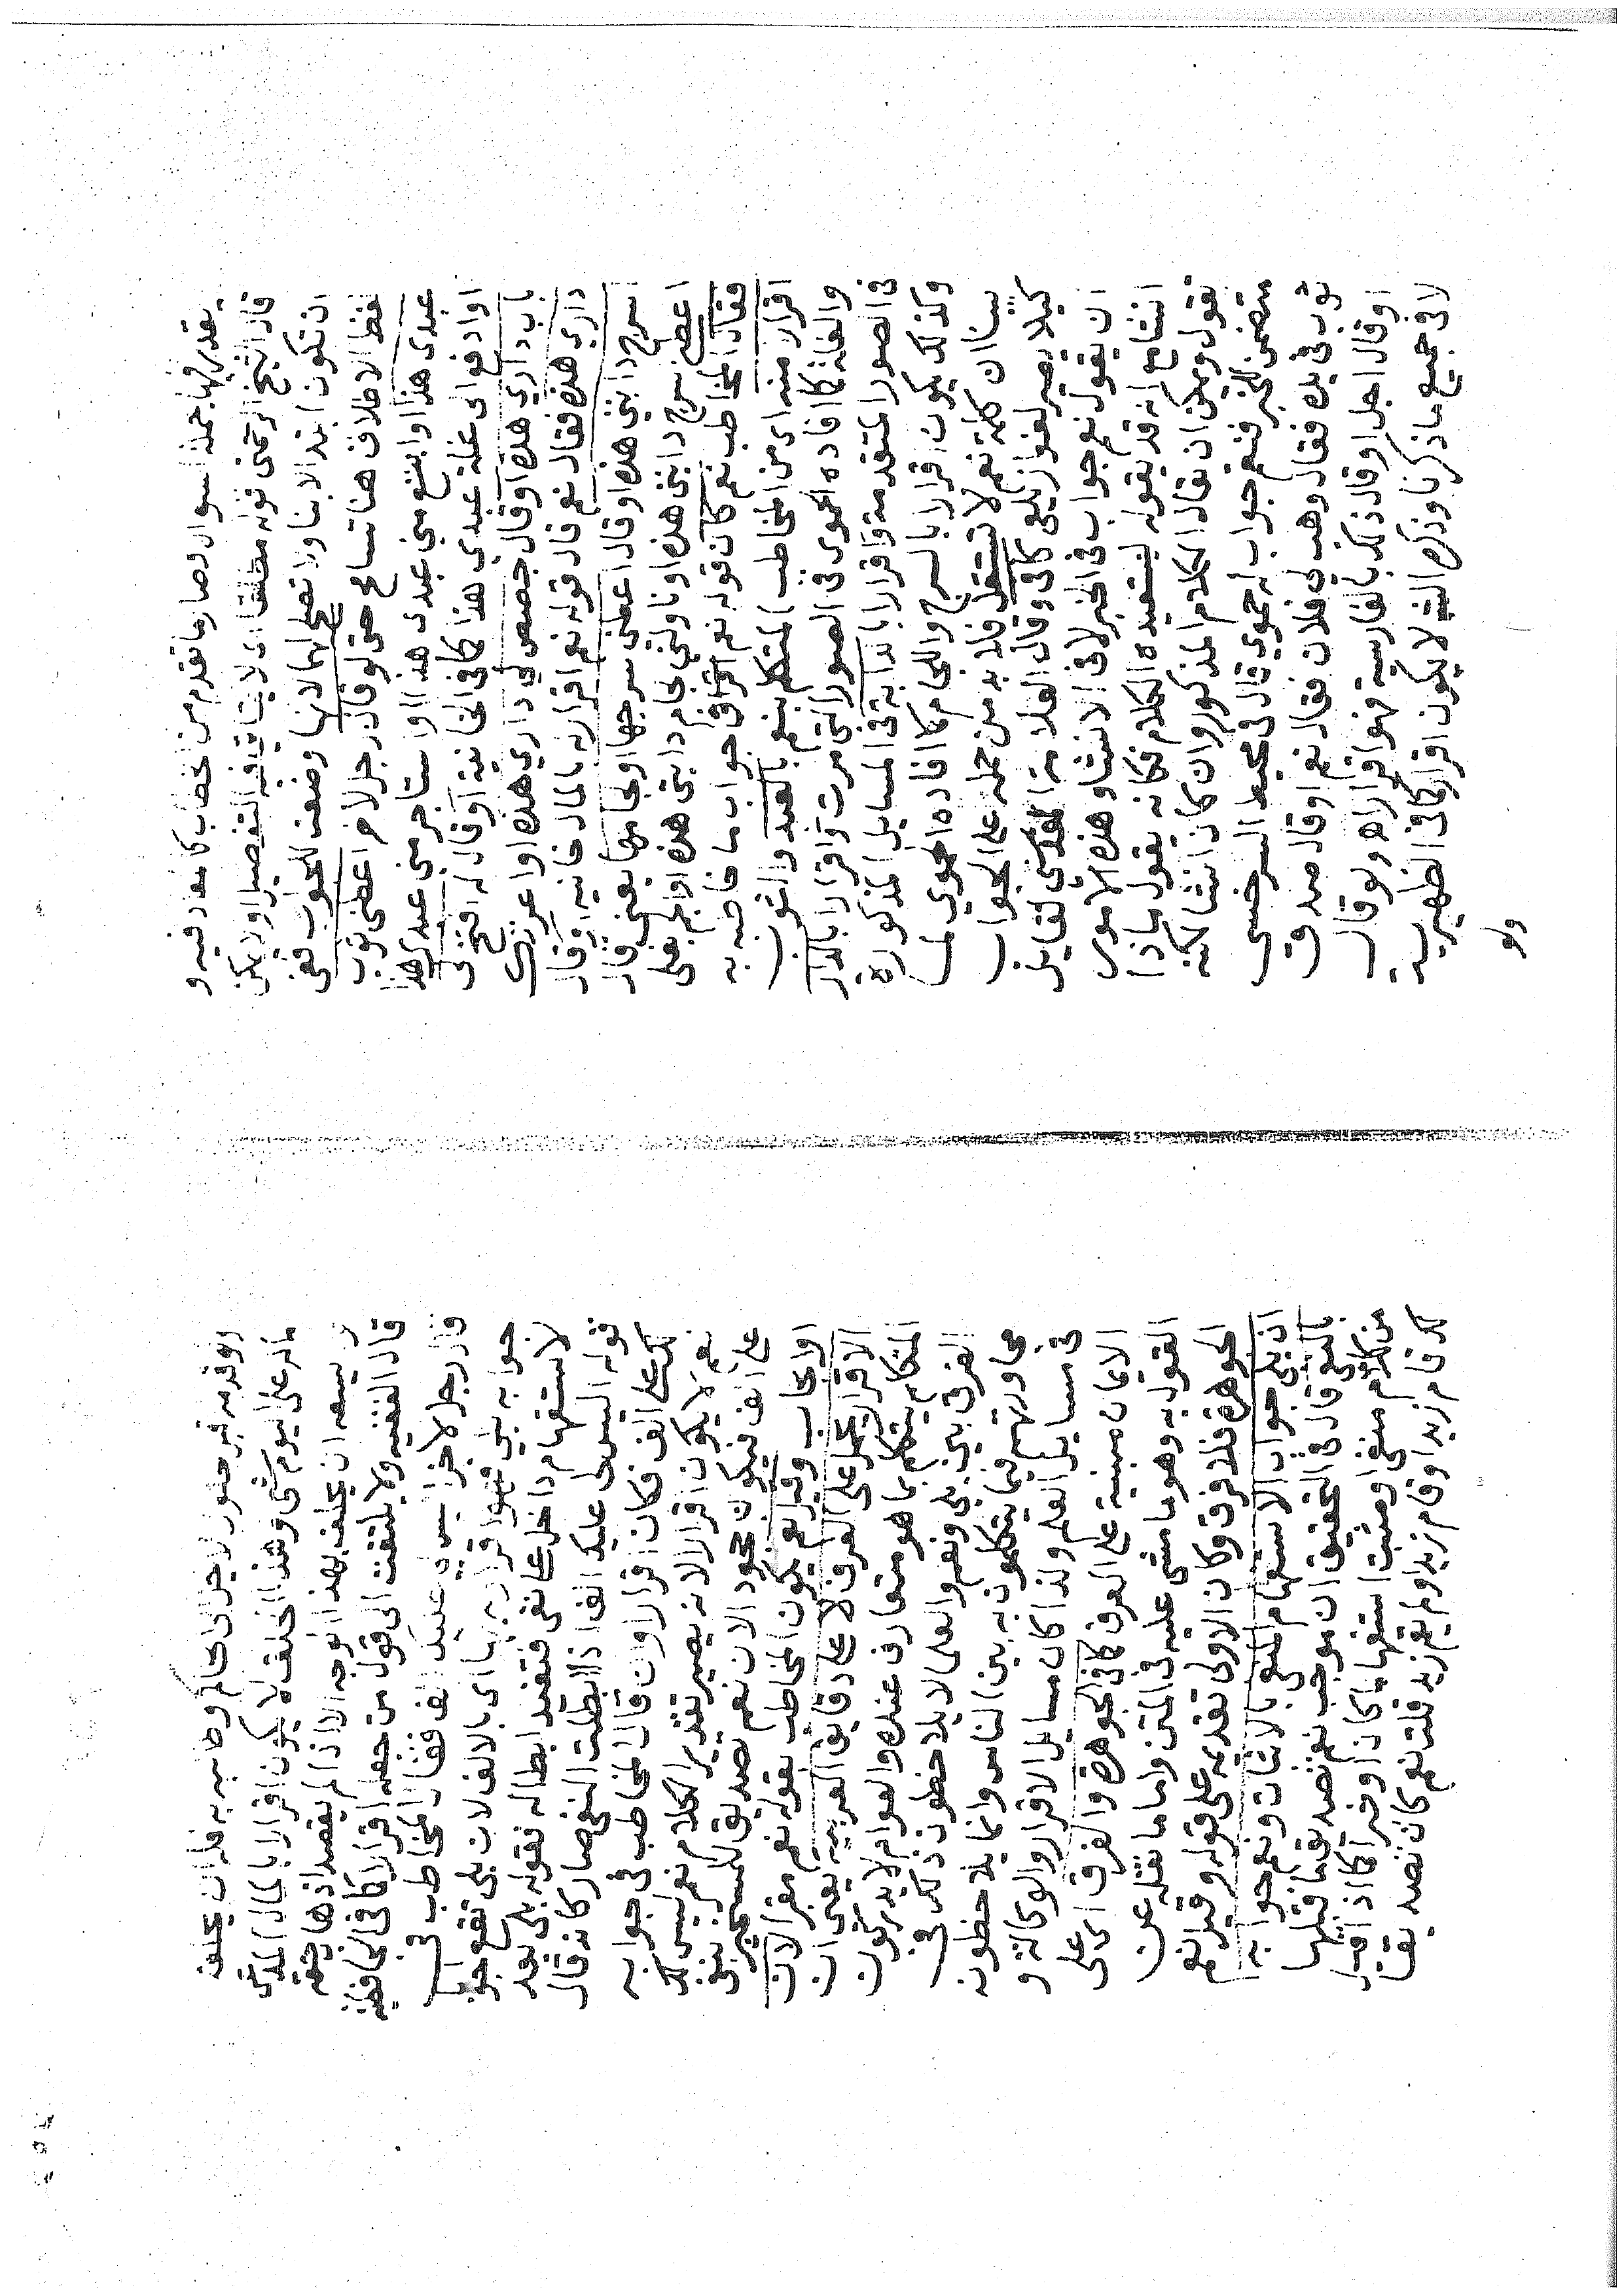 يقدر فيها جملة السوال وصار ما تقدم من الخطاب كالمعاد فيه و
قال الشيخ الرحمتى قوله مطلقا اى لا يتاتى فيه التفصيل اولا يمكن
ان تكون ابتدا لابنا ولا تصلح لهما لانها وضعت للجواب ففى
لفظ الاطلاق هنا تسامح حتى لو قال رجل لاخر اعطنى ثوب
عبدى هذا او ابتع منى عبدى هذا او استاجر منى عبدى هذا
او ادفع الى غلة عبدى هذا كما فى الخانية او قال له افتح
باب دارى هذه او قال جصص لى دارى هذه او اعرنى
دارى هذه فقال نعم قال قوله نعم اقرار به بالمال خانيه او قال
اسرج دابتى هذه او قال اعطنى سرجها او لجامها يعنى قال
اعطنى سرج دابتى هذه او ناولنى لجام دابتى هذه او لجم بغلى
فقال المخاطب نعم كان قوله نعم اقرار فى جواب ما خاطبه به
اقرارا منه اى من المخاطب المتكلم بنعم بالعبد والثوب
والغلة كما افاده الحموى فى الصور التى مرت واقرارا بالدار
فى الصور المتقدمة واقرارا بالدابة فى المسايل المذكورة
وكذلك يكون اقرارا بالسرج واللجام كما افاده الحموى لما
بينا ان كلمة نعم لا تستقل فلا بد من حمله على الجواب
كيلا يصير لغوا زيلعى كافى وقال العلامة المقدسى لقايل
ان يقول نعم جواب فى الخبر لا فى الانشا وهذه الامور
انشا مع انه قد يقوله ليستعيده الكلام فكانه يقول ماذا
تقول ويمكن ان يقال الكلام المذكور وان كان انشا لكنه
متضمن للخبر فنعم جواب له حموى قال فى محيط السرخسى
ثوب فى يده فقال وهبه لى فلان فقال نعم او قال صدق
او قال اجل او قال ذلك بالفارسية فهو اقرار اه ولو قال
لا فى جميع ما ذكرنا وذكره لا يكون اقرار كما فى الظهيرية
ولو
ولو قدمه قبل حضور لاجل الى الحاكم وطالبه به فله ان يحلف
ماله على اليوم شى وهذا الحلف لا يكون اقرارا بالمال المدعى
لا يسعه ان يحلف بهذا الوجه الا اذا لم يقصد اذهاب حقه
قال الفقيه ولا يلتفت الى قول من جعله اقرارا كما فى الحافظية
قال رجل لاخر اليس لى عليك الف فقال المخاطب فى
جوابه بلى فهو اقرار به بها اى بالالف لان بلى تقع جوابا
لاستفهام داخل على نفى فتفيد ابطاله فقوله بلى بعد
قوله اليس لى عليك الف اذ ابطلت النفى صار كانه قال
لك على الف فكان اقرارا وان قال المخاطب فى جوابه
نعم لا يكون اقرارا لانه يصير تقدير الكلام نعم ليس لك
على الف فيكون جحودا لان نعم تصديق للمستخبر بنفى
او ايجاب وقيل نعم يكون المخاطب بقوله نعم مقرا لان
الاقرار يحمل على العرف لا على دقايق العربية يعنى ان
المتكلم يتكلم بما هو متعارف عنده والعوام لا يدركون
الفرق بين بلى ونعم والعلما لا يلاحظون ذلك فى
محاورتهم فيما يتكلمون به بين الناس وانما يلاحظونه
فى مسايل العلم ولذا كان مسايل الاقرار والوكالة و
الايمان مبنية على العرف كما فى الجوهرة والفرق اى على
القول به وهو ما مشى عليه فى المتن واما ما نقله عن
الجوهرة فلا فرق وكان الاولى تقديمه على قوله وقيل نعم
ان بلى جواب الاستفهام المنفى بالاثبات ونعم جوابه
بالنفى قال فى التحقيق ان موجب نعم تصديق ما قبلها
من كلام منفى او مثبت استفهاما كان او خبرا كما اذا قيل
لك قام زيد او قام زيد او لم يقم زيد فقلت نعم كان تصديقا